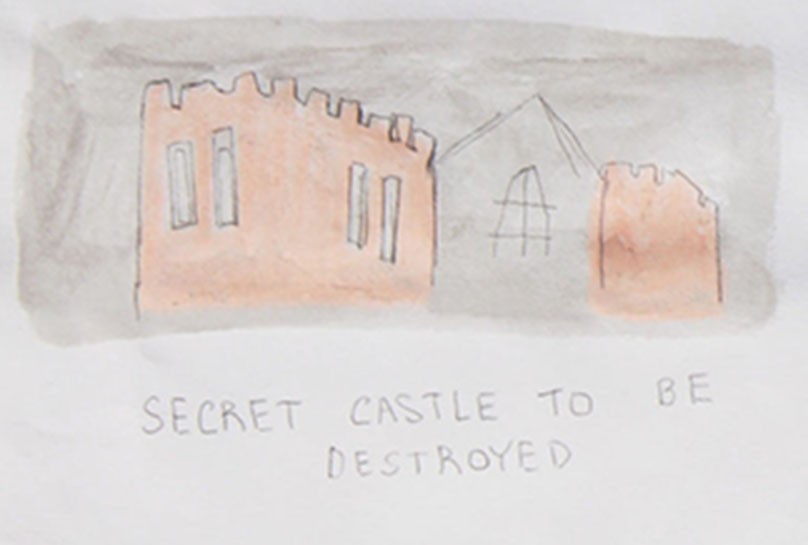 SECRET CASTLE TO BE
DESTROYED